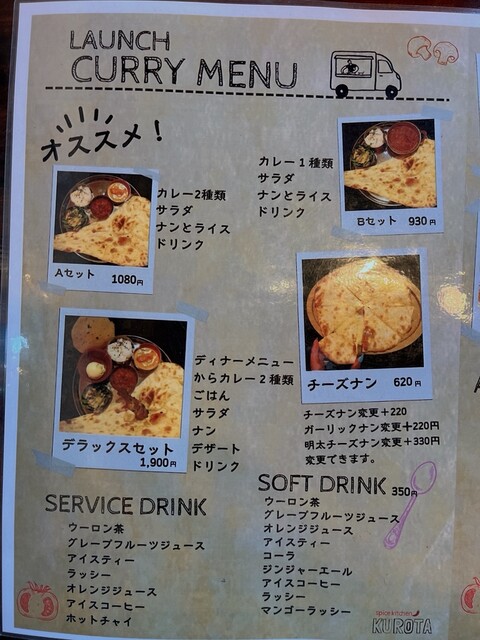 LAUNCH
CURRY MENU
オススメ!
カレー2種類
サラダ
ナンとライス
ドリンク
Aセット 1080円
カレー1種類
サラダ
ナンとライス
ドリンク
Bセット 930円
チーズナン 620円
チーズナン変更+220
ガーリックナン変更+220円
明太チーズナン変更+330円
変更できます。
ディナーメニュー
からカレー2種類
ごはん
サラダ
ナン
デザート
ドリンク
デラックスセット
1,900円
SERVICE DRINK
ウーロン茶
グレープフルーツジュース
アイスティー
ラッシー
オレンジジュース
アイスコーヒー
ホットチャイ
SOFT DRINK 350円
ウーロン茶
グレープフルーツジュース
オレンジジュース
アイスティー
コーラ
ジンジャーエール
アイスコーヒー
ラッシー
マンゴーラッシー
spice kitchen
KUROTA